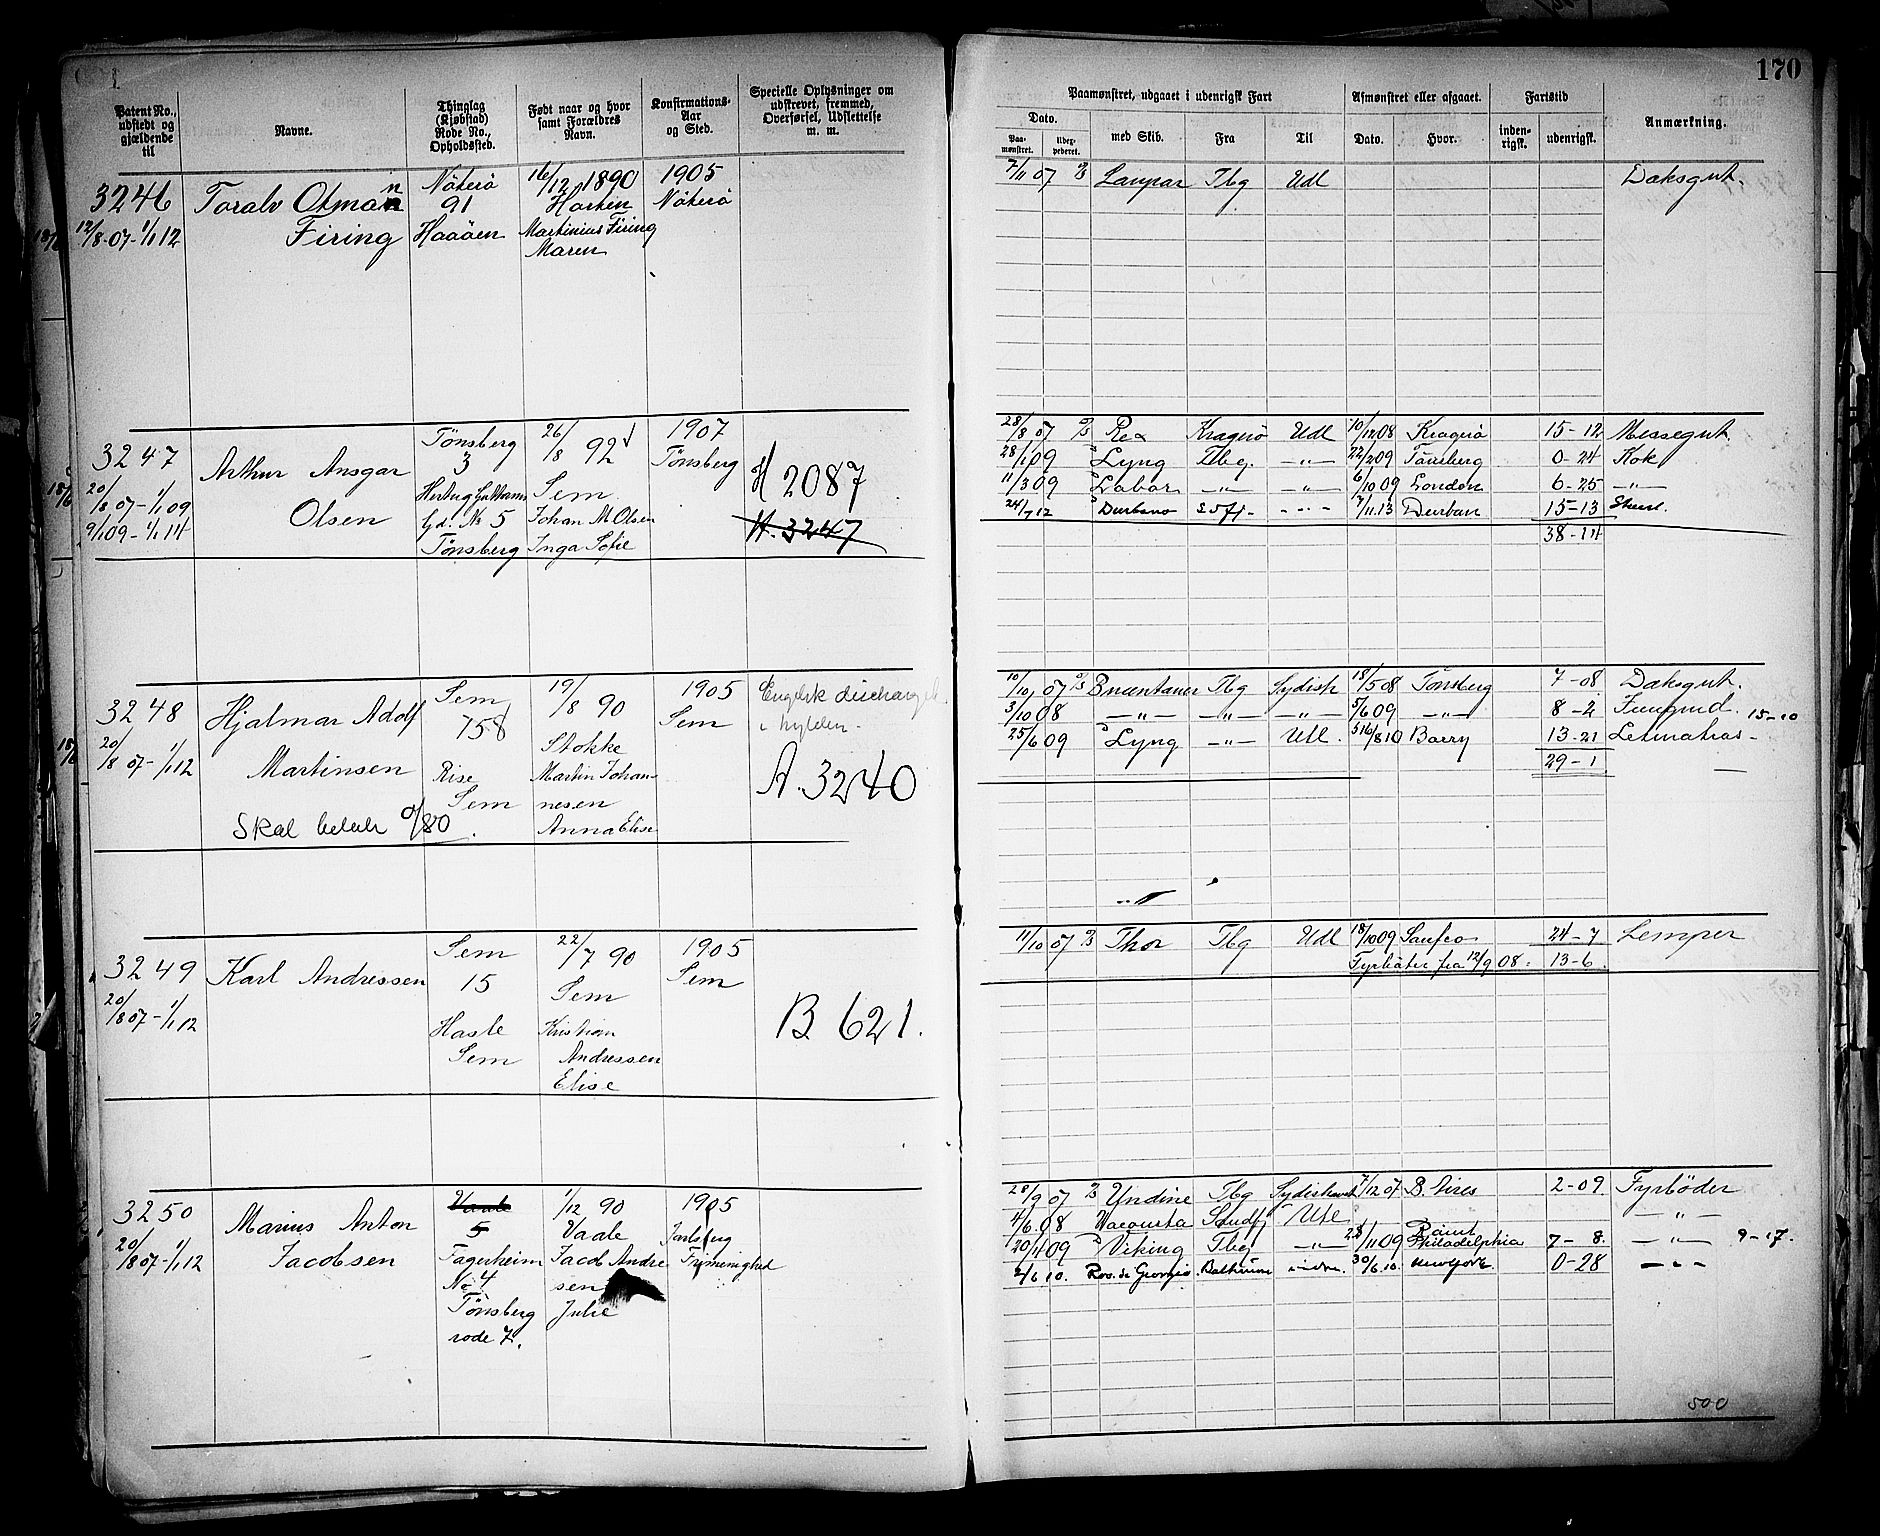 170
Patent No., udstedt og gjældende til
Navne.
Thinglag (Kjøbstad) Rode No., Opholdssted.
Født naar og hvor samt Forældres Navn.
Konfirmations-Aar og Sted.
Specielle Oplysninger om udskrevet, fremmed, Overførsel, Udslettelse m. m.
Paamønstret, udgaaet i udenrigsk Fart
Afmønstret eller afgaaet.
Fartstid
Anmærkning.
Dato.
Paamønstret.
med Skib.
Fra
Til
Dato.
Hvor.
indenrigsk.
udenrigsk.
3246
12/8-07-1/1 12
Toralv Otman
Firing
Nøterø
91
Haaøen
16/12 1890
Horten
Martinius Firing
Maren
1905
Nøterø
7/11 07 Laupar Tbg Udl Daksgut.
3247
20/8 07-1/1 09
9/1 09-1/1 14
Arthur Ansgar
Olsen
Tønsberg
3
Gd. No 5
Tønsberg
26/8 92
Sem
Johan M. Olsen
Inga Sofie
1907
Tønsberg
A 2087
A. 3247
28/8 07 Rex Kragerø Udl 10/12 08 Kragerø 15-12 Messegut.
28/1 09 Lyng Tbg. -"- 22/2 09 Tønsberg 0-24 Kok
11/3 09 Labor -"- -"- 6/10 09 London 6-25 -"-
24/7 12 Durbano Sofj- -"- 7/11.13 Durban 15-13
38-14
3248
20/8 07-1/1 12
Hjalmar Adolf
Martinsen
Skal betale 0/80
Sem
758
Rise
Sem
19/8 90
Stokke
Martin Johannesen
Anna Elise
1905
Sem
Engelsk discharge
A. 3240
10/10 07 Bucentaur Tbg Sydish 18/5 08 Tønsberg 7-08 Daksgut.
3/10 08 -"- -"- -"- 5/6 09 -"- 8-2 Jungmd. 15-10
25/6 09 Lyng -"- Udl. 16/8 10 Barry 13-21 Letmatros
29-1
3249
20/8 07-1/1 12
Karl Andressen
Sem
15
Hasle
Sem
22/7 90
Sem
Kristian
Andressen
Elise
1905
Sem
B 621.
11/10 07 Thor Tbg Udl 18/10 09 24-7 Lemper
Fyrbøter fra 12/9 08. 13-6.
3250
20/8 07-1/1 12
Marius Anton
Jacobsen
Vaale
5
Fagerheim
No 4
Tønsberg
rode 7.
1/12 90
Vaale
Jacob Andresen
Julie
1905
Jarlsberg
Frimenighed
28/9 07 Undine Tbg Sydishavet 7/12 07 B. Aires 2-09. Fyrbøder
4/6.08 Sandfj Udl -"-
20/4 09 Viking Tbg -"- 28/11 09 Philadelphia 7-8. -"- 9-17.
2/6 10. 30/6.10. Newyork 0-28 -"-
500